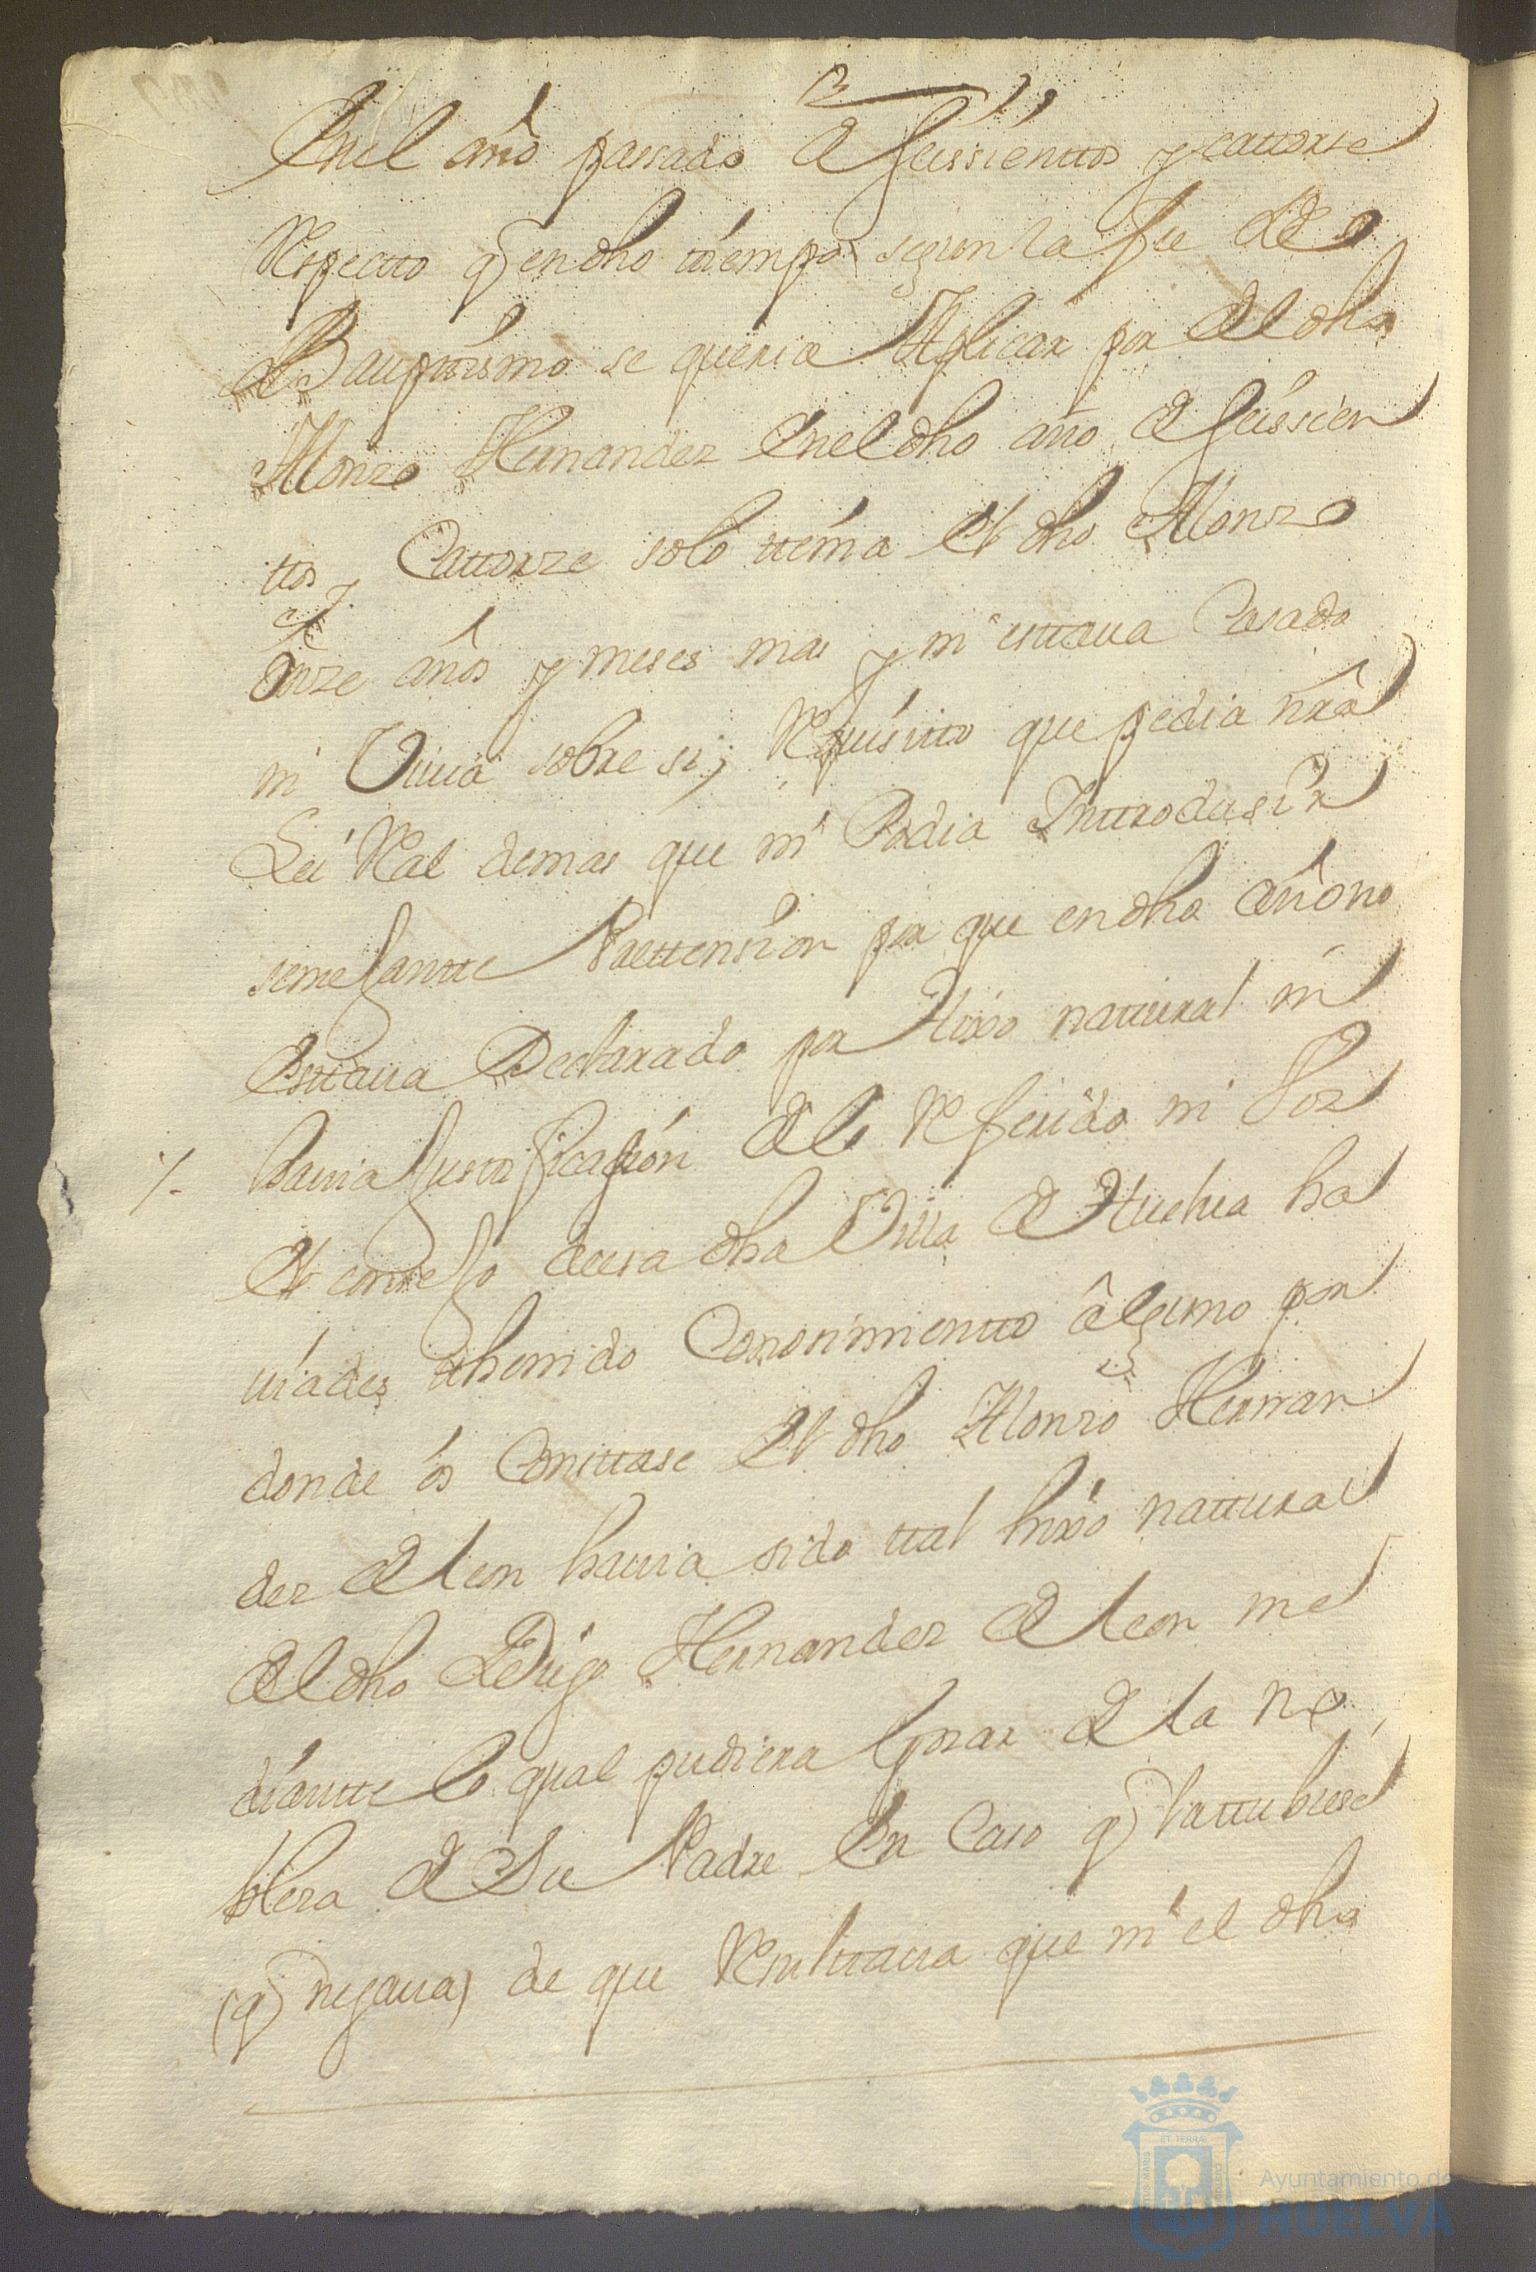 Enel año passado de seissienttos y cattorse
Respectto q̃ en dho tiempo segun la fee de
Bauptismo se queria Aplicar por del dho
Alonzo Hernandez Enel dho año de seissien
ttos y Cattorze solo ttenia El dho Alonzo
onze años y meses mas y ni esttaua Casado
ni Viuia sobre si; Requisitto que pedia nrã
Lei Real demas que ni Podia Inttrodusir
semejantte Prettension por que en dho año no
Esttaua Declarado por Hixo nattural ni
hauia Justificasion de lo Referido ni Por
El consejo de essa dha Villa de Huelua ha
uiades thenido Conosimientto âlguno por
donde os Consttase El dho Alonzo Hernan
dez de leon hauia sido ttal hixo nattural
del dho Diego Hernandez de leon me
diantte lo qual pudiera gosar de la no
bleza de Su Padre En Caso q̃ la ttubiese
(q̃ negaua) de que Resulttaua que ni el dho
Ayuntamiento de
HUELVA